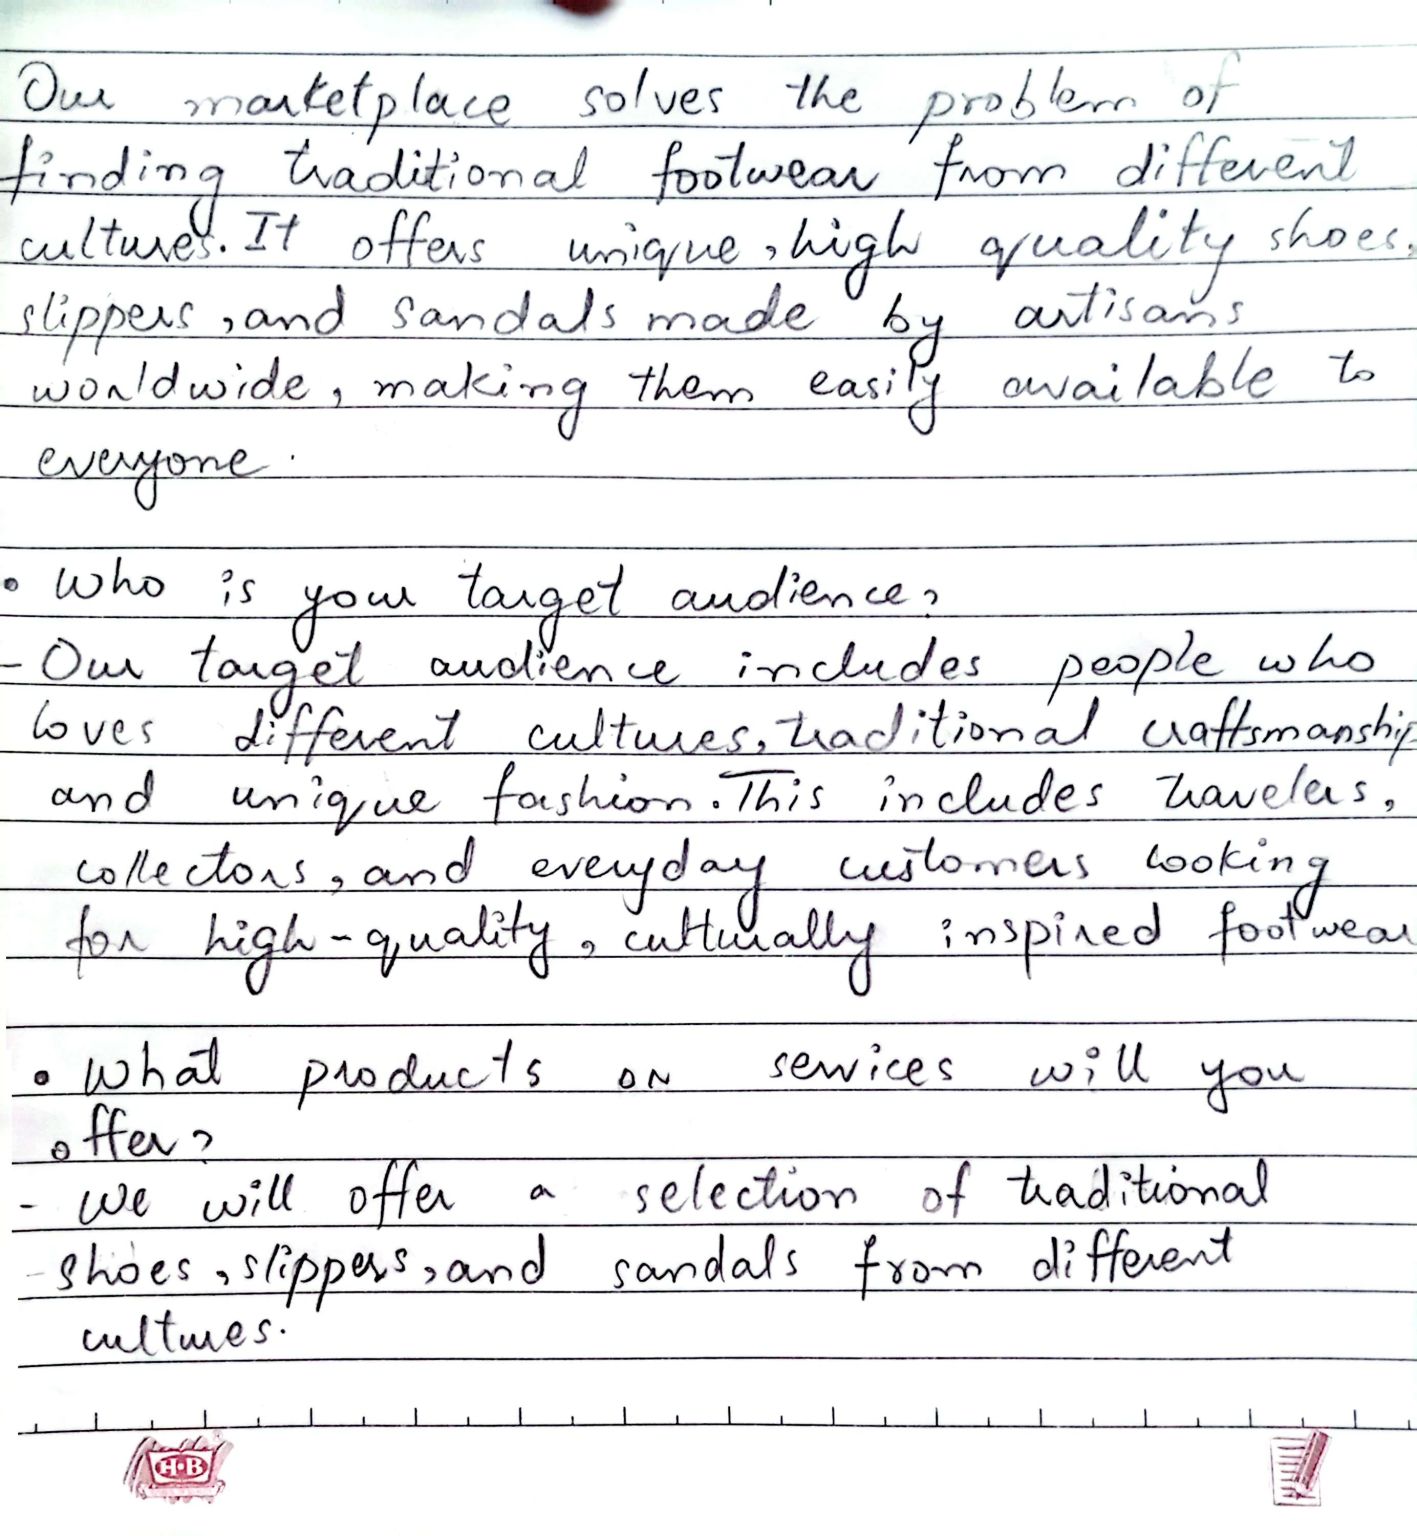 Our marketplace solves the problem of
finding traditional footwear from different
cultures. It offers unique, high quality shoes,
slippers, and sandals made by artisans
worldwide, making them easily available to
everyone.
• Who is your target audience?
- Our target audience includes people who
loves different cultures, traditional craftsmanship
and unique fashion. This includes travelers,
collectors, and everyday customers looking
for high-quality, culturally inspired footwear
• What products or services will you
offer?
- We will offer a selection of traditional
- shoes, slippers, and sandals from different
cultures.
H•B